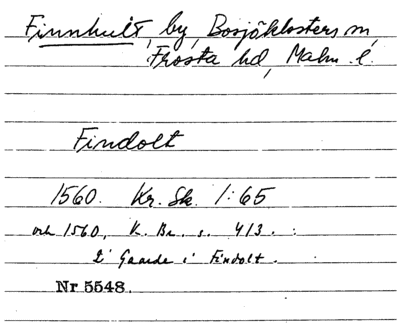 Finnhult, by, Bosjöklosters sn,
Frosta hd, Malm. l.
Findolt
1560. Kr. Sk. 1:65
och 1560, K. Br. s. 413.
2 Gaarde i Findolt.
Nr 5548.